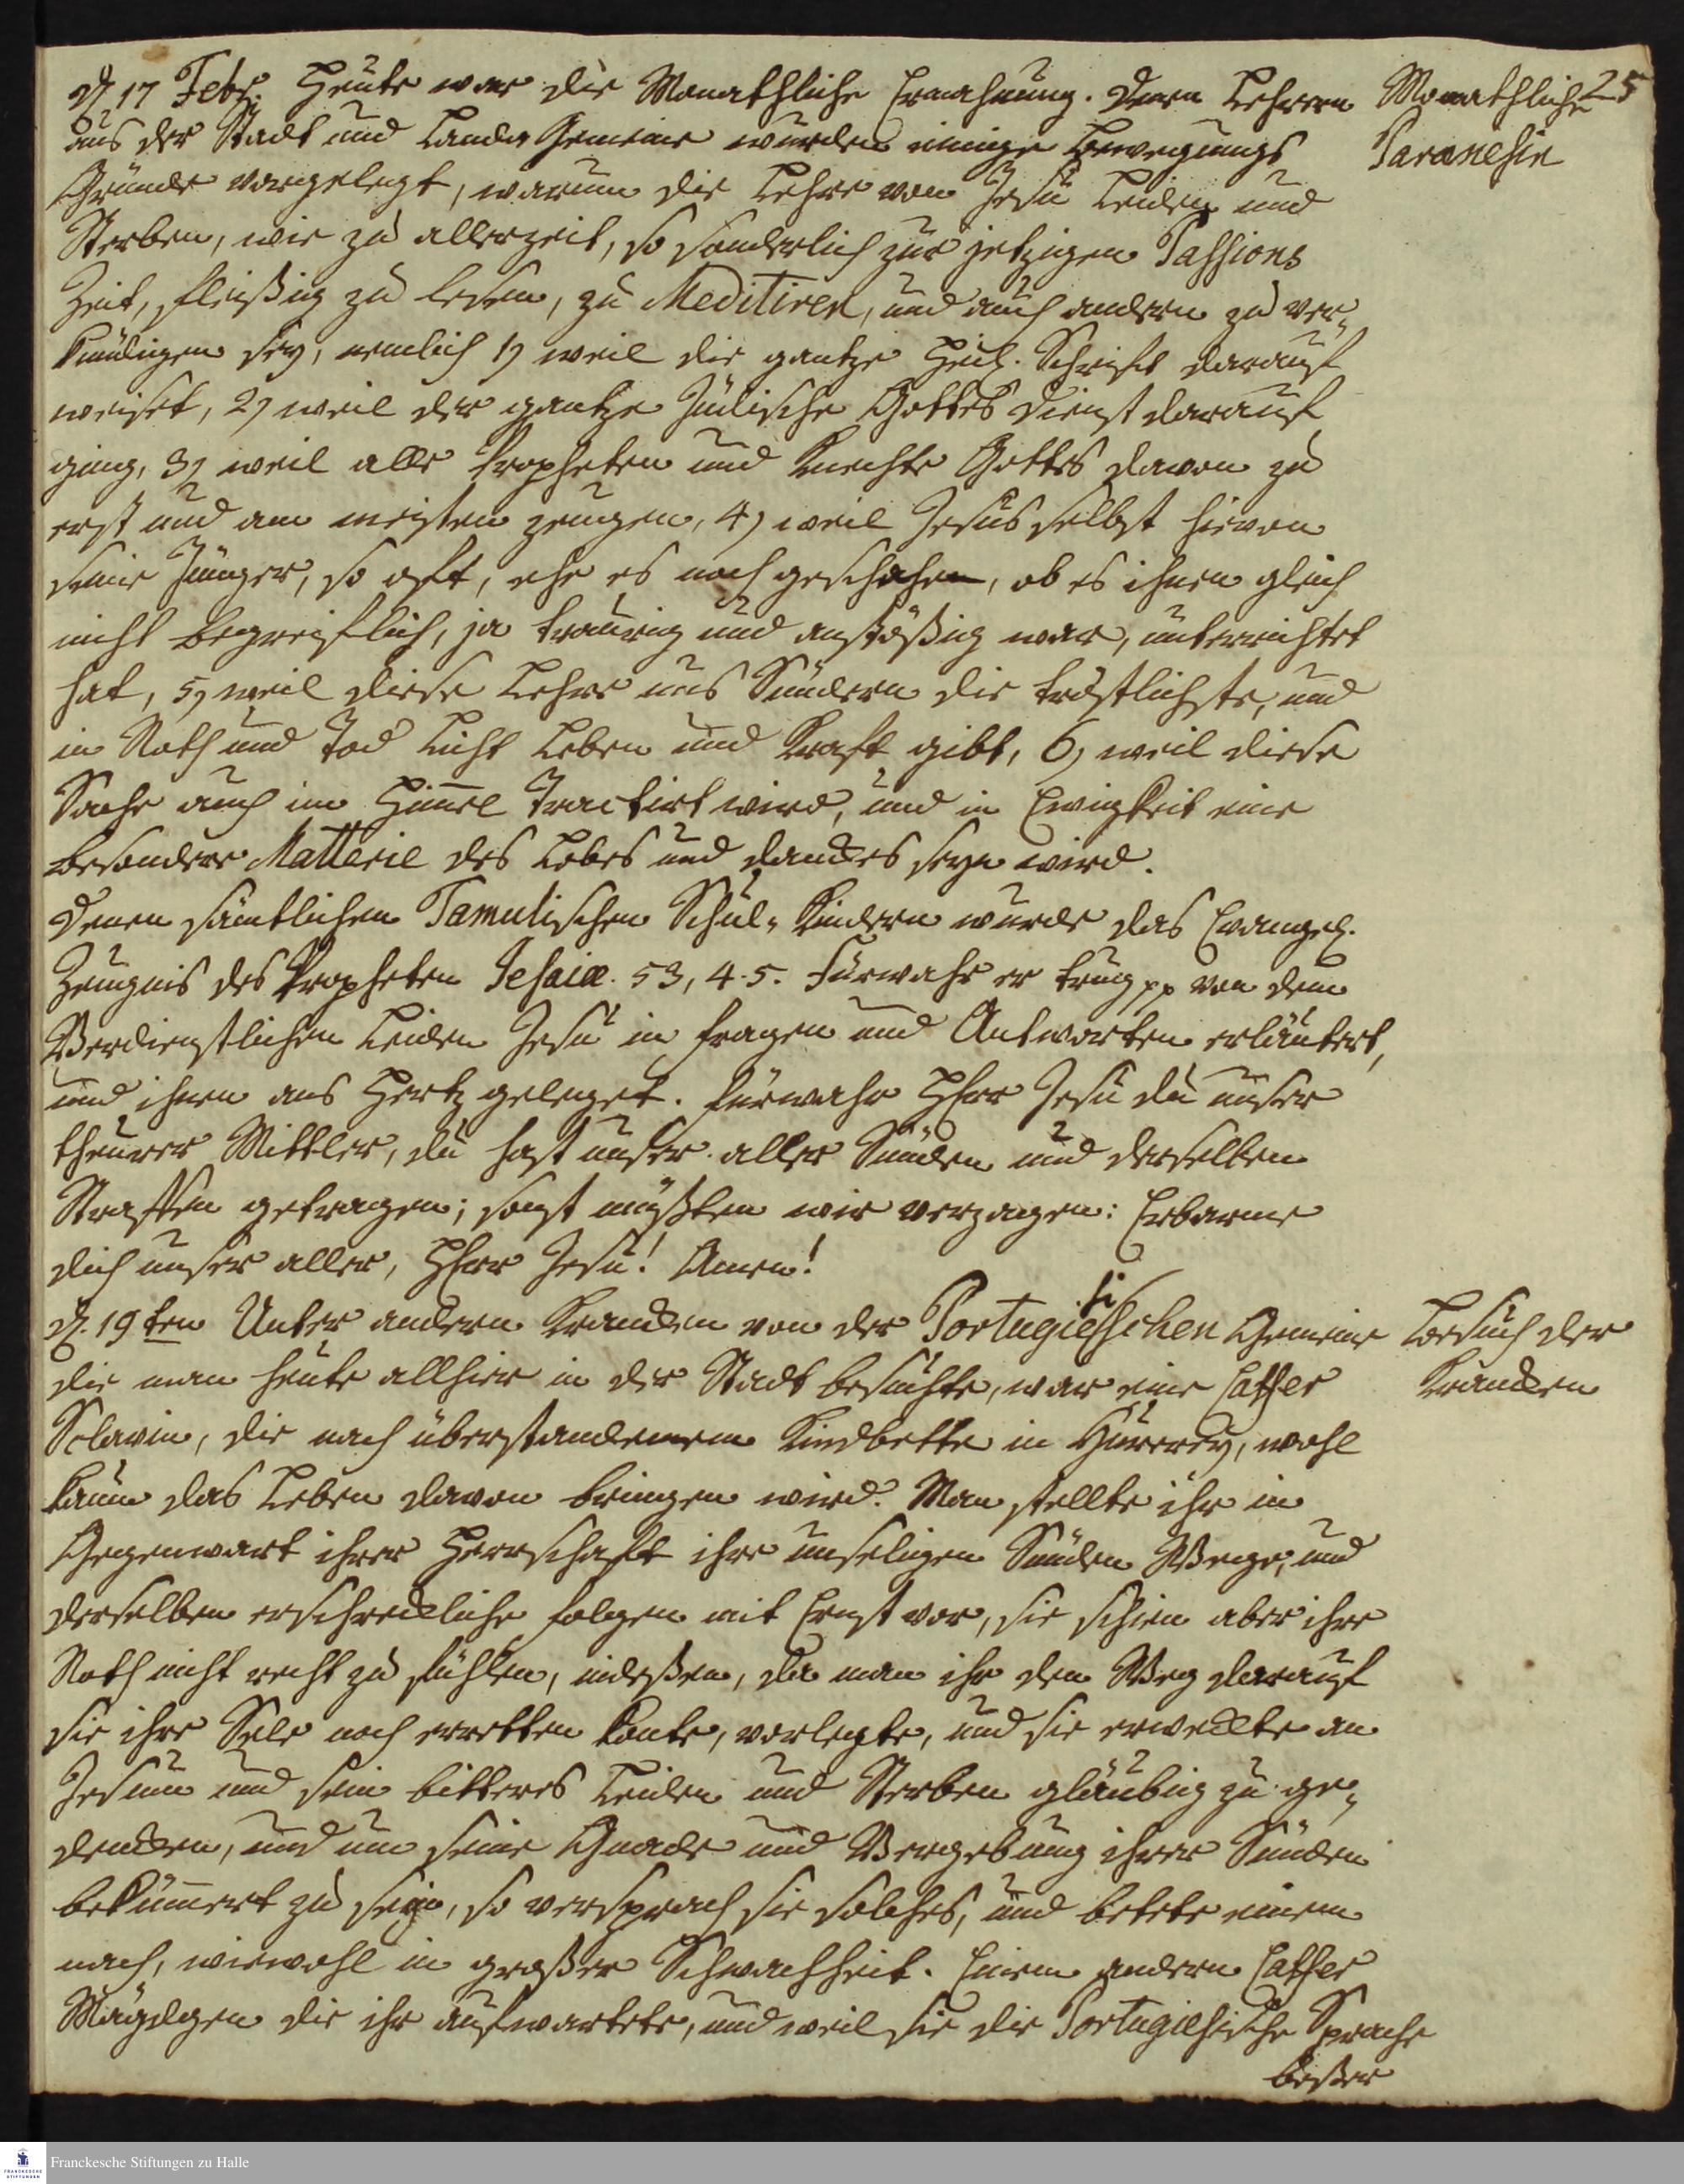 25
D. 17 Febr. Heute war die Monathliche Ermahnung. Denen Lehrern
Monathliche
aus der Stadt und Landes Gemeine wurden einige Bewegungs
Paranesie
Gründe vorgelegt, warum die Lehre von Jesu Leiden und
Sterben, wie zu allerzeit, so sonderlich zur jetzigen Passions
Zeit, fleißig zu lesen, zu Meditiren, und auch andern zu ver-
kündigen sey, nemlich 1) weil die gantze Heil. Schrift darauf
weiset, 2) weil der gantze Jüdische Gottes Dienst darauf
ging, 3) weil alle Propheten und Knechte Gottes davon zu
erst und am meisten zeugen, 4) weil Jesus selbst hievon
seine Jünger, so oft, ehe es noch geschehen, ob es ihnen gleich
nicht begreiflich, ja traurig und anstößig war, unterrichtet
hat, 5) weil diese Lehre uns Sündern die tröstlichste, und
in Noth und Tod Licht Leben und Kraft gibt, 6) weil diese
Sache auch im Himmel Tractirt wird, und in Ewigkeit eine
besondere Matterie des Lobes und Danckes seyn wird.
Denen sämtlichen Tamulischen Schul-Kindern wurde das Evangel.
Zeugnis des Propheten Jesaiæ. 53, 4.5. Fürwahr er trug pp von dem
Verdienstlichen Leiden Jesu in Fragen und Antworten erläutert,
und ihnen ans Hertz geleget. Fürwahr HErr Jesu du unser
theurer Mittler, du hast unser aller Sünden und derselben
Straffen getragen; sonst müßten wir verzagen: Erbarme
dich unser aller, HErr Jesu! Amen!
D. 19ten Unter andern Krancken von der Portugiesischen Gemeine
Besuch der
die man heute allhier in der Stadt besuchte, war eine Caffer
Krancken
Sclavin, die nach überstandenem Kindbette in Hurerey, wohl
kaum das Leben davon bringen wird. Man stellte ihr in
Gegenwart ihrer Herrschaft ihre unseligen Sünden Wege, und
derselben erschreckliche Folgen mit Ernst vor, sie schien aber ihre
Noth nicht recht zu fühlen, indeßen, da man ihr den Weg darauf
sie ihre Sele noch erretten konte, vorlegte, und sie erweckte an
Jesum und sein bitteres Leiden und Sterben gläubig zu ge-
dencken, und um seine Gnade und Vergebung ihrer Sünden
bekümmert zu seyn, so versprach sie solches, und betete einem
nach, wiewohl in großer Schwachheit. Einem andern Caffer
Mägdgen die ihr aufwartete, und weil sie die Portugiesische Sprache
beßer
Franckesche Stiftungen zu Halle
FRANCKESCHE STIFTUNGEN